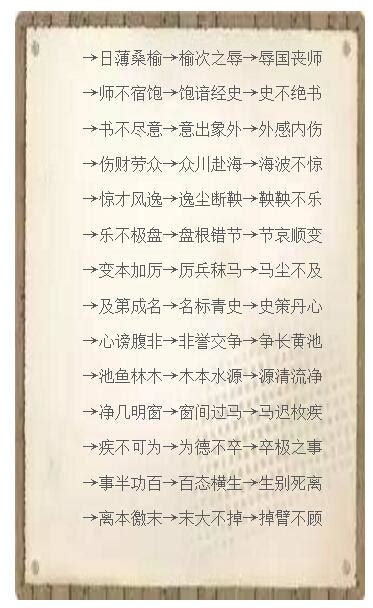 →日薄桑榆→榆次之辱→辱国丧师
→师不宿饱→饱谙经史→史不绝书
→书不尽意→意出象外→外感内伤
→伤财劳众→众川赴海→海波不惊
→惊才风逸→逸尘断鞅→鞅鞅不乐
→乐不极盘→盘根错节→节哀顺变
→变本加厉→厉兵秣马→马尘不及
→及第成名→名标青史→史策丹心
→心谤腹非→非誉交争→争长黄池
→池鱼林木→木本水源→源清流净
→净几明窗→窗间过马→马迟枚疾
→疾不可为→为德不卒→卒极之事
→事半功百→百态横生→生别死离
→离本徼末→末大不掉→掉臂不顾